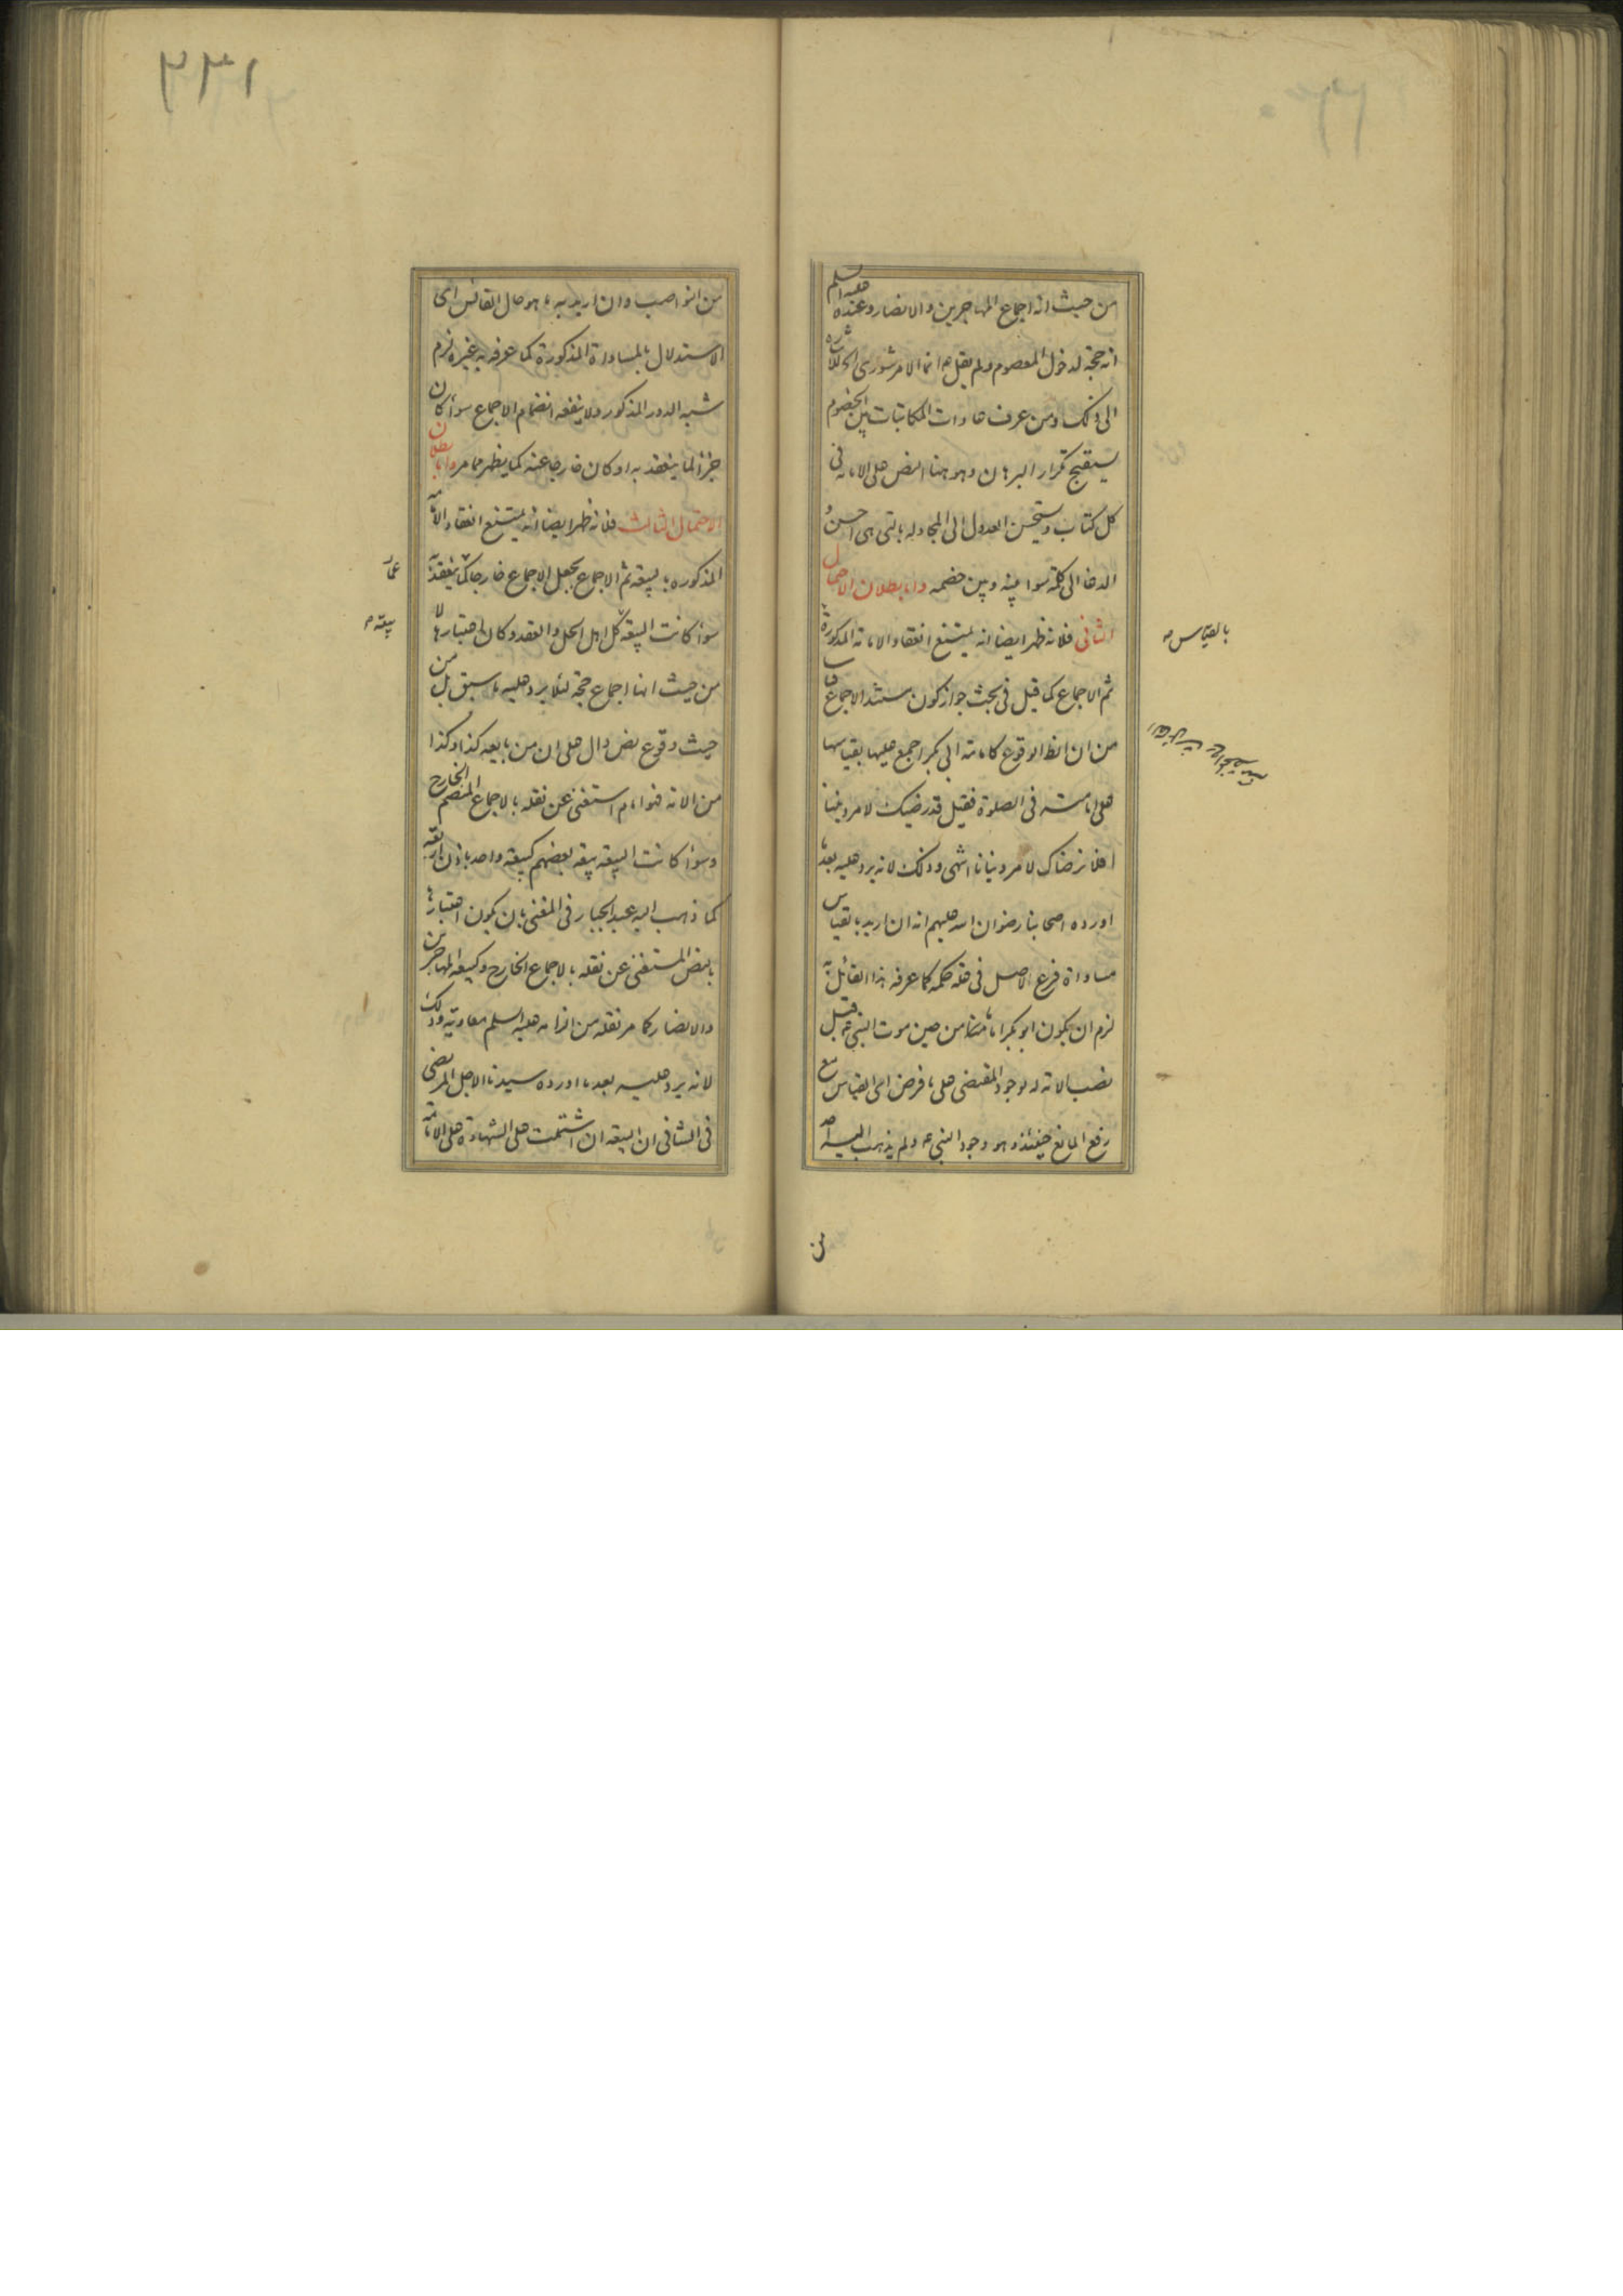 من حيث انه اجماع المهاجرين والانصار وعنده عليه السلم
انه حجة لدخول المعصوم ولم يقل ع انما الامر شورى الى ثلاثة
الى ذلك ومن عرف عادات المكاتبات بين الخصوم
يستقبح تكرار البرهان وهو هنا النص على الامامة فى
كل كتاب ويستحسن العدول الى المجادلة بالتى هى احسن و
الدعا الى كلمة سواء بينه وبين خصمه واما بطلان الاحتمال
الثانى فلانه ظهر ايضا انه يمتنع انعقاد الامامة المذكورة
بالقياس
ثم الاجماع كما قيل فى بحث جواز كون مستند الاجماع قياسا
من ان الظ الوقوع كامامة ابى بكر اجمع عليها بقياسها
على امامته فى الصلوة فقيل قد رضيك لامر ديننا
افلا نرضاك لامر دنيانا انتهى وذلك لانه يرد عليه بعد ما
اورده اصحابنا رضوان الله عليهم انه ان اريد بالقياس
مساواة فرع الاصل فى علة حكمه كما عرفه هذا القائل به
لزم ان يكون ابو بكر اماما من حين موت النبى ع قبل
نصب الامة له لوجود المقتضى على ما فرض اى القياس مع
رفع المانع حينئذ وهو وجود النبى ع ولم يذهب اليه احد
من
١٣٦
من النواصب وان اريد به ما هو حال القائس اى
الاستدلال بالمساواة المذكورة كما عرفه به غيره لزم
شبه الدور المذكور ولا ينفعه انضمام الاجماع سواء كان
جزءا لما ينعقد به او كان خارجا عنه كما يظهر مما مر واما بطلان
الاحتمال الثالث فلانه ظهر ايضا انه يمتنع انعقاد الامامة
المذكوره بالبيعة ثم الاجماع بجعل الاجماع خارجا عما ينعقد به
عما
سواء كانت البيعة كل اهل الحل والعقد وكان اعتبارها لا
بيعة
من حيث انها اجماع حجة لئلا يرد عليه ما سبق بل من
حيث وقوع نص دال على ان من بايعه كذا وكذا
من الامة فهو امام استغنى عن نقله بالاجماع المنضم الخارج
وسواء كانت البيعة بيعة بعضهم كبيعة واحد باذن اربعة
كما ذهب اليه عبد الجبار فى المغنى بان يكون اعتبارها
بالنص المستغنى عن نقله بالاجماع الخارج وكبيعة المهاجرين
والانصار كما مر نقله من الزامه عليه السلم معاوية وذلك
لانه يرد عليه بعد ما اورده سيدنا الاجل المرتضى
فى الشافى ان البيعة ان اشتملت على الشهادة على الامامة